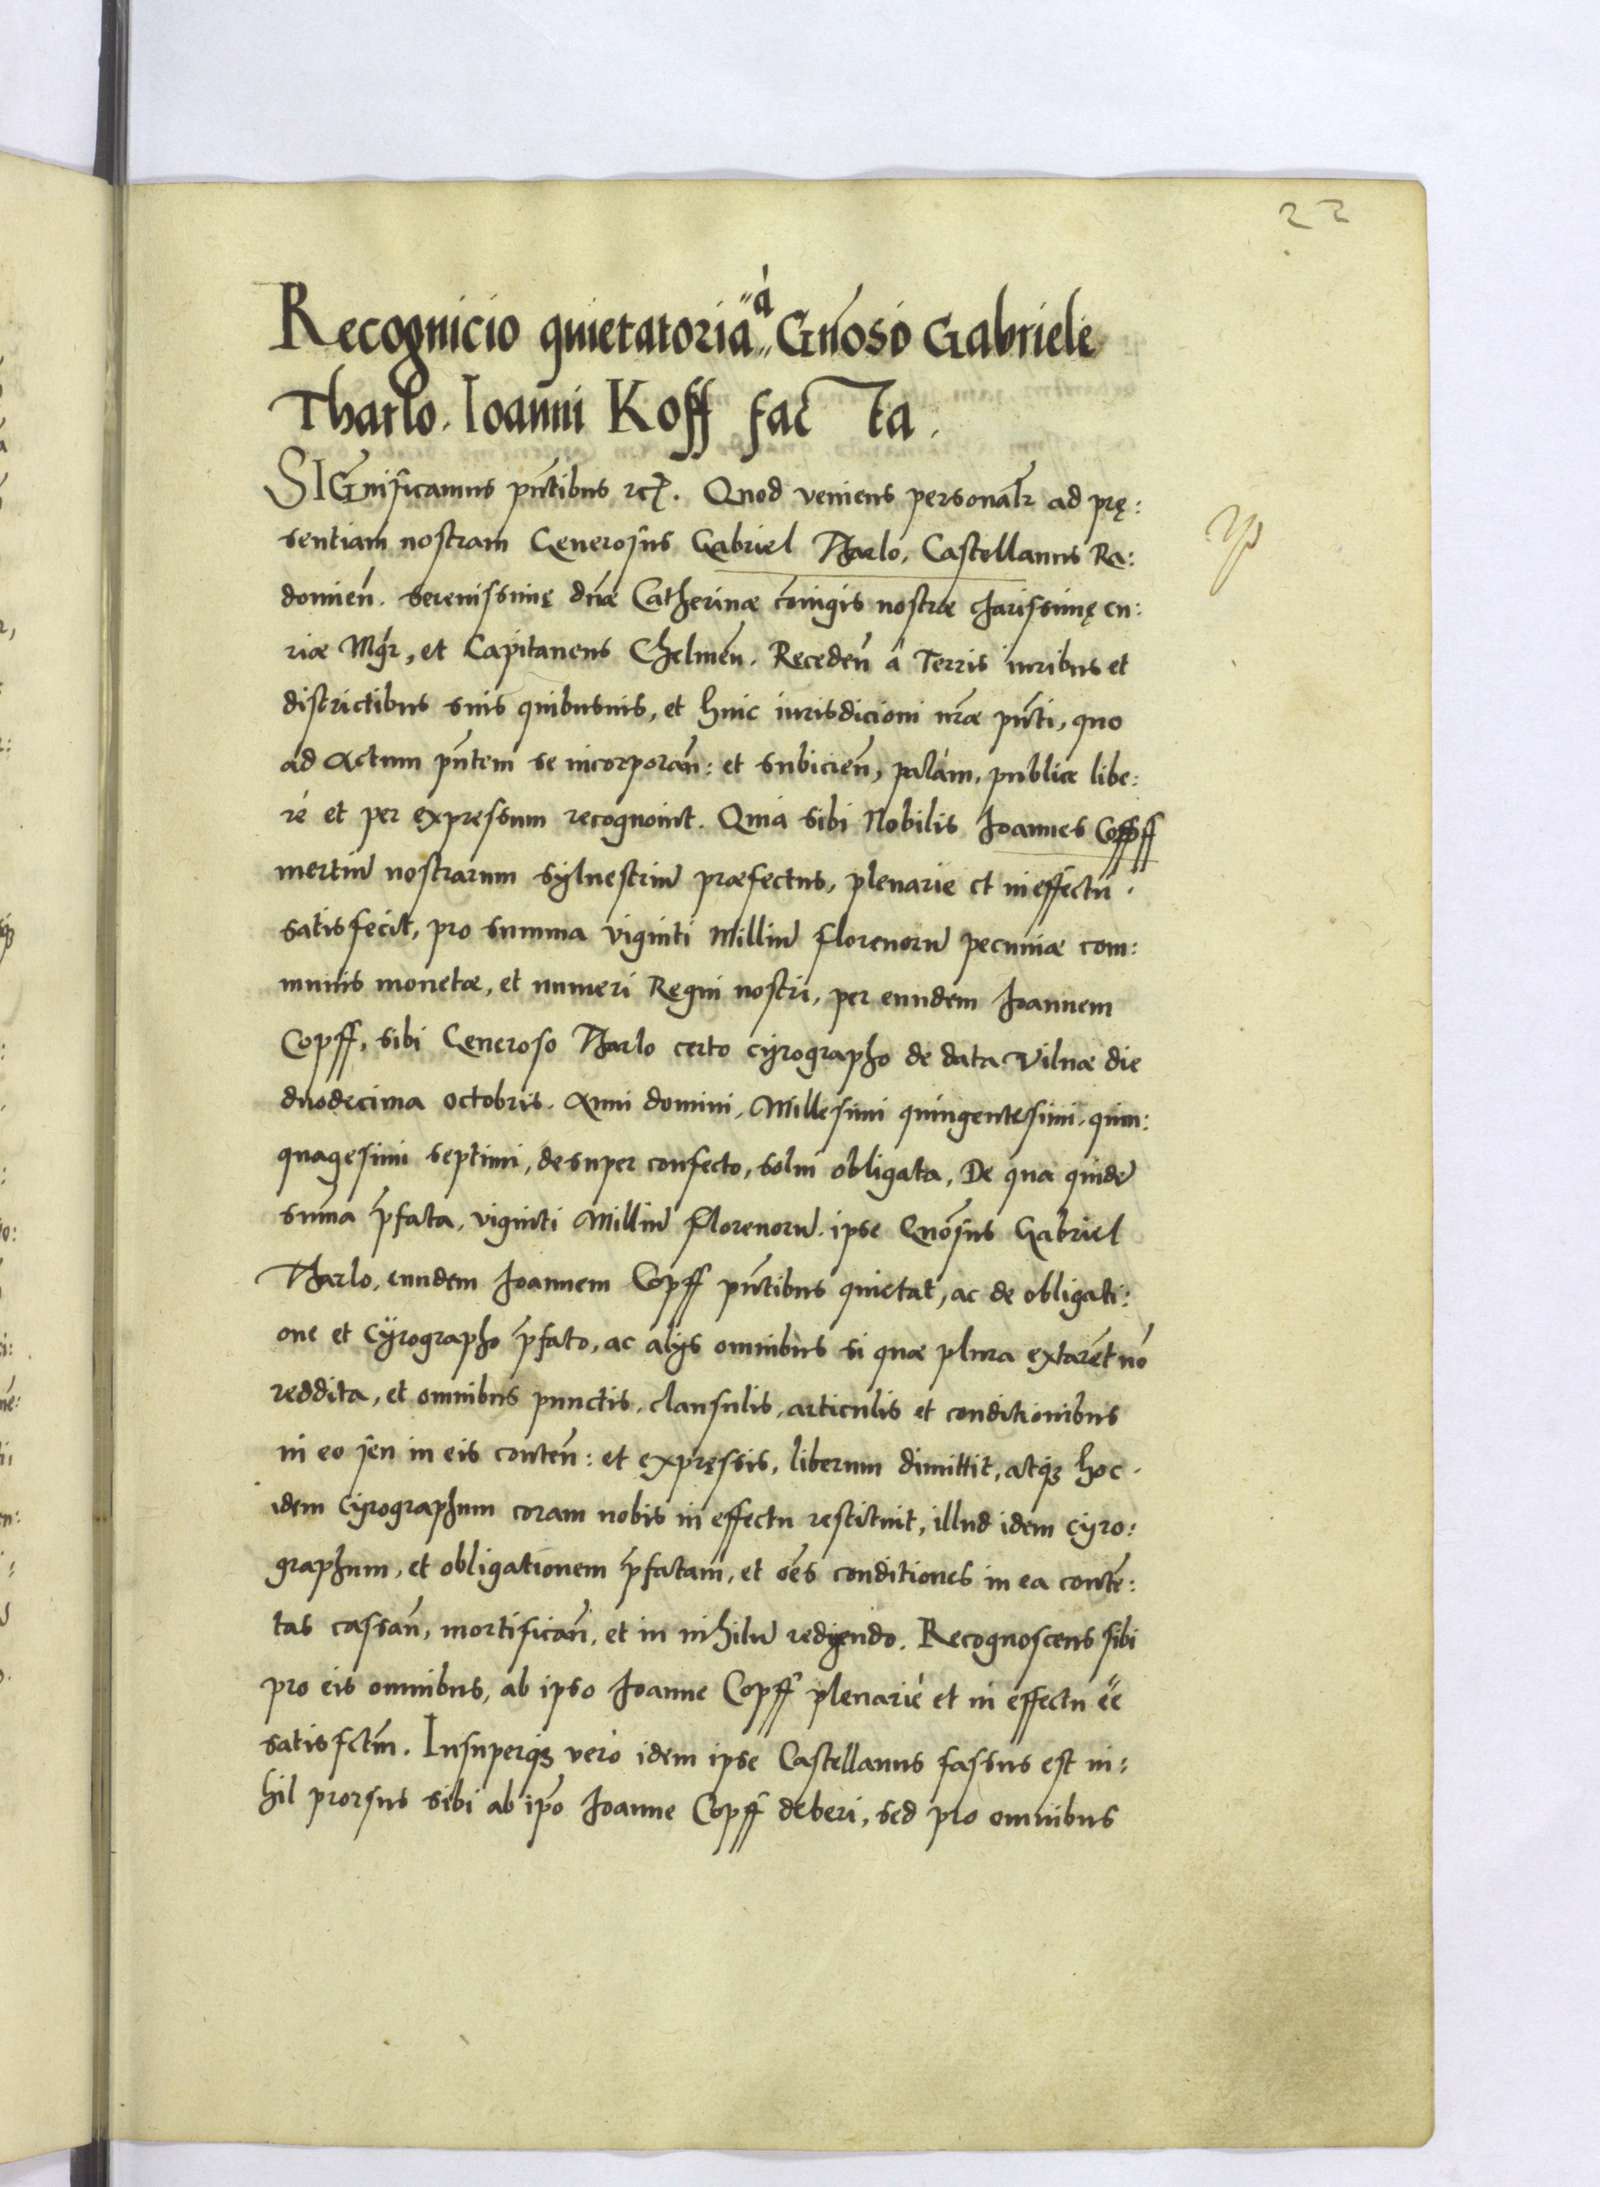 22
Recognicio quietatoria à Gn̄oso Gabriele
Tharlo. Ioanni Koff facta.
SIGnificamus pn̄tibus etc. Quod veniens personalr̄ ad prę:
sentiam nostram Generosus Gabriel Tharlo, Castellanus Ra:
domień. serenissimę dn̄æ Catherinæ cōiugis nostræ charissimę cu:
riæ Mgr̄, et Capitaneus Chelmeń. Recedeń à Terris iuribus et
districtibus suis quibusuis, et huic iurisdicioni nr̄æ pn̄ti, quo
ad Actum pn̄tem se incorporań: et subicień, palàm, publicæ libe:
rè et per expressum recognouit. Quia sibi Nobilis Joannes Copff
mertiū nostrarum syluestriū præfectus, plenarie et in effectu
satisfecit, pro summa viginti Milliū florenorū pecuniæ com:
munis monetæ, et numeri Regni nostri, per eundem Joannem
Copff, sibi Generoso Tharlo certo cyrographo de data Vilnæ die
duodecima octobris. Anni domini, Millesimi quingentesimi quin:
quagesimi septimi, desuper confecto, solui obligata, De qua quidē
sum̄a p̄fata, viginti Milliū florenorū. ipse Gnōsus Gabriel
Tharlo, eundem Joannem Copff pn̄tibus quietat, ac de obligati:
one et Cyrographo p̄fato, ac alijs omnibus si quæ plura extarēt nō
reddita, et omnibus punctis, clausulis, articulis et conditionibus
in eo seu in eis conteń: et expręssis, liberum dimittit, atq3 hoc
idem Cyrographum coram nobis in effectu restituit, illud idem cyro:
graphum, et obligationem p̄fatam, et oēs conditiones in ea contē:
tas cassań, mortificań, et in nihilū redigendo. Recognoscens sibi
pro eis omnibus, ab ipso Joanne Copff plenariè et in effectu ēē
satisfctm̄. Insuperq3 verò idem ipse Castellanus fassus est ni:
hil prorsus sibi ab ip̄o Joanne Copff deberi, sed pro omnibus